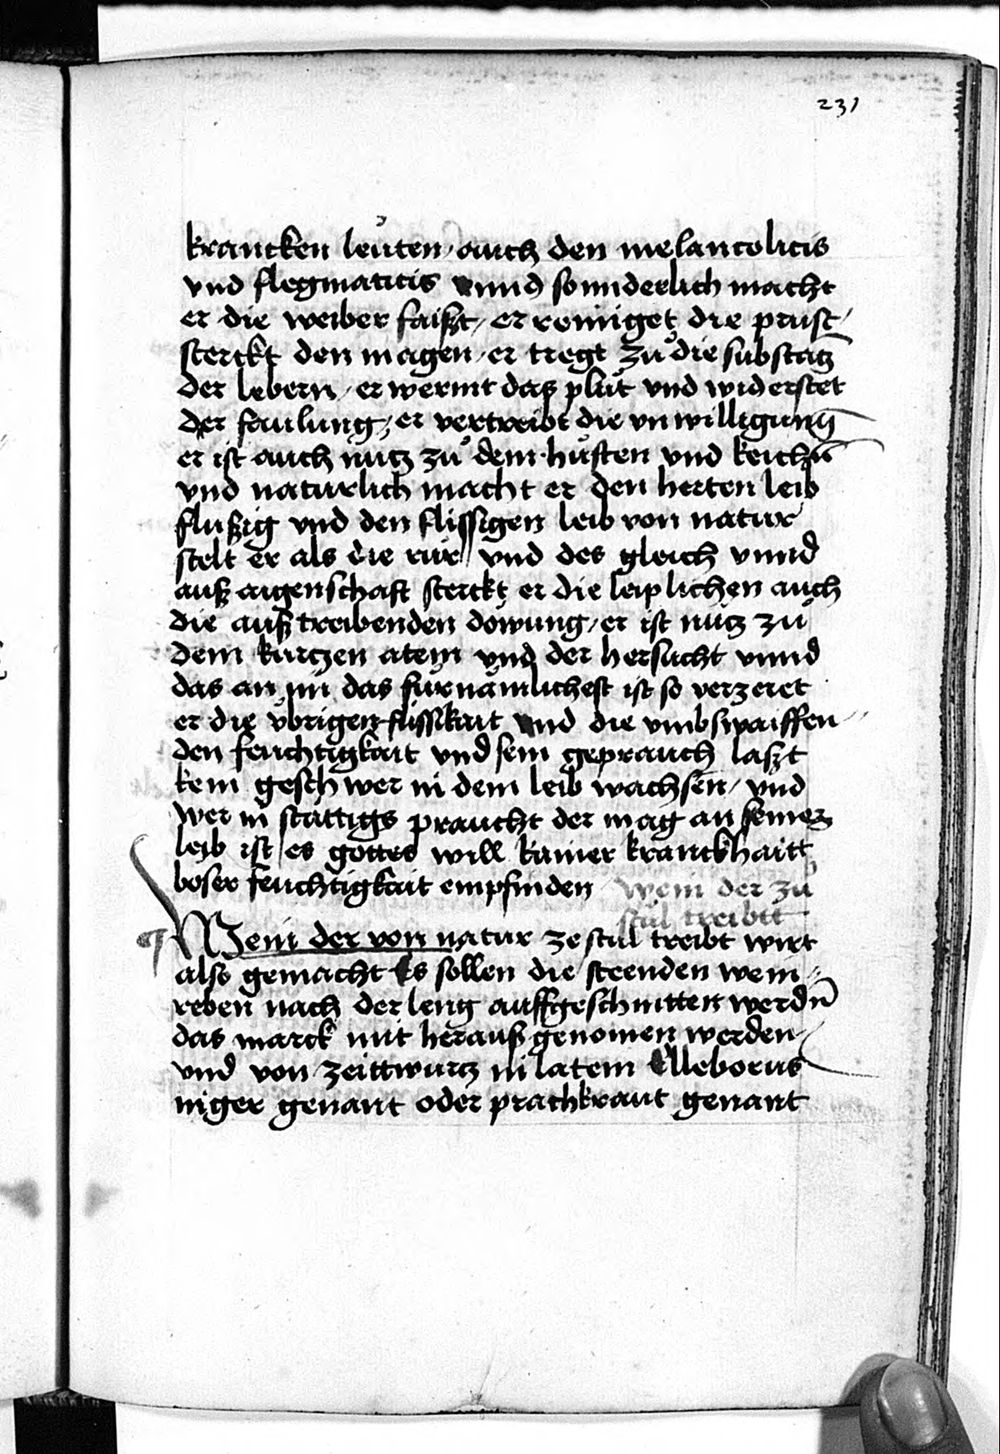 231
krancken leuten / auch den melancolicis
vnd flegmaticis vnnd sonnderlich macht
er die weiber faißt / er reiniget die prust /
sterckt den magen / er tregt zů die substatz
der lebern / er wermt das plůt vnd widerstet
der faulung / er vertreibt die vnwilligung
er ist auch nutz zů dem hůsten vnd keichn̄
vnd naturlich macht er den herten leib
flußig vnd den flissigen leib von natur
stelt er als die rur // vnd des gleich vnnd
auß aigenschaft sterckt er die leiplichen auch
die außtreibenden dowung / er ist nutz zů
dem kurtzen atem vnd der hersucht vnnd
das an im das furnamlichest ist so verzeret
er die vbrigen flissikait vnd die vmbswaiffen //
den feuchtigkait vnd sein geprauch laßt
kein geschwer in dem leib wachsen / vnd
wer in stattigs praucht der mag an seinez
leib ist es gottes will kainer kranckhaitt
boser feuchtigkait empfinden wein der zu
stul treibtt
Wein der von natur ze stul treibt wirt
also gemacht Es sollen die steenden wein //
reben nach der leng auffgeschnitten werdn̄
das marck mit herauß genomen werden
vnd von zeittwurtz in latein Elleborus
niger genant oder prachkraut genant